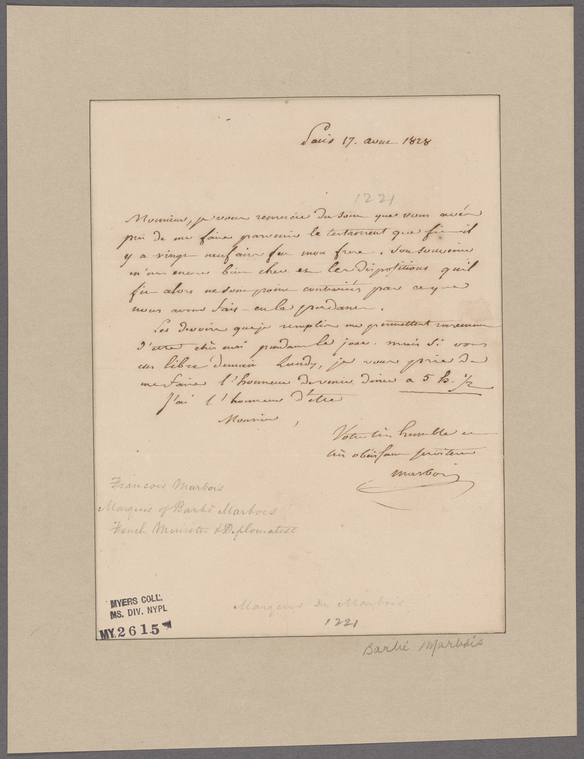 Paris 17. avril 1828
1221
Monsieur, je vous remercie du soin que vous avez
pris de me faire parvenir le testament que fit il
y a vingt neuf ans feu mon frere. Son souvenir
m'est encore bien cher et les dispositions qu'il
fit alors ne sont point contrariées par ce que
nous avons fait en la
Les devoirs que je remplis me permettent rarement
d'etre chez moi pendant le jour. mais si vous
etes libre demain Lundy, je vous prie de
me faire l'honneur de venir diner a 5 h. 1/2
J'ai l'honneur d'etre
Monsieur,
Votre très humble et
très obéissant serviteur
Marbois
Francois Marbois
Marquis of Barbé Marbois
French Minister & Diplomatist
MYERS COLL.
MS. DIV. NYPL
MY 2615
Marquis de Marbois
1221
Barbé Marbois